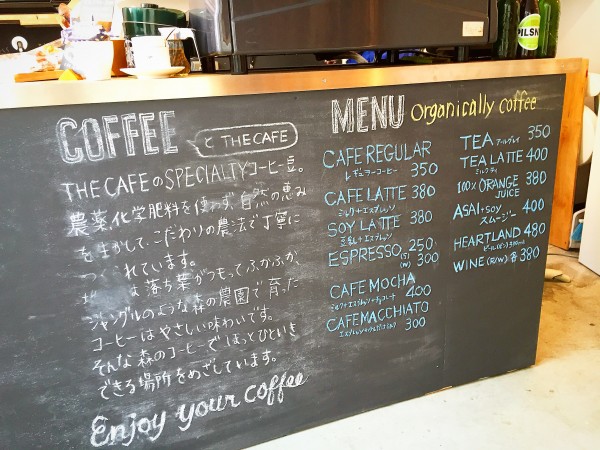 PILSN
COFFEE
と THE CAFE
THE CAFEのSPECIALTYコーヒー豆。
農薬化学肥料を使わず、自然の恵み
を生かして、こだわりの農法で丁寧に
つくられています。
落ち葉がつもってふかふか
ジャングルのような森の農園で育った
コーヒーはやさしい味わいです。
そんな森のコーヒーでほっとひといき
できる場所をめざしています。
Enjoy your coffee
MENU Organically coffee
CAFE REGULAR
レギュラーコーヒー 350
CAFE LATTE 380
ミルク+エスプレッソ
SOY LATTE 380
豆乳+エスプレッソ
ESPRESSO (S) 250
(W) 300
CAFE MOCHA
ミルク+エスプレッソ+チョコレート 400
CAFE MACCHIATO
300
TEA アールグレイ 350
TEA LATTE 400
ミルクティ
100% ORANGE JUICE 380
ASAI+SOY
スムージー 400
HEARTLAND 480
WINE (R/W) 各380